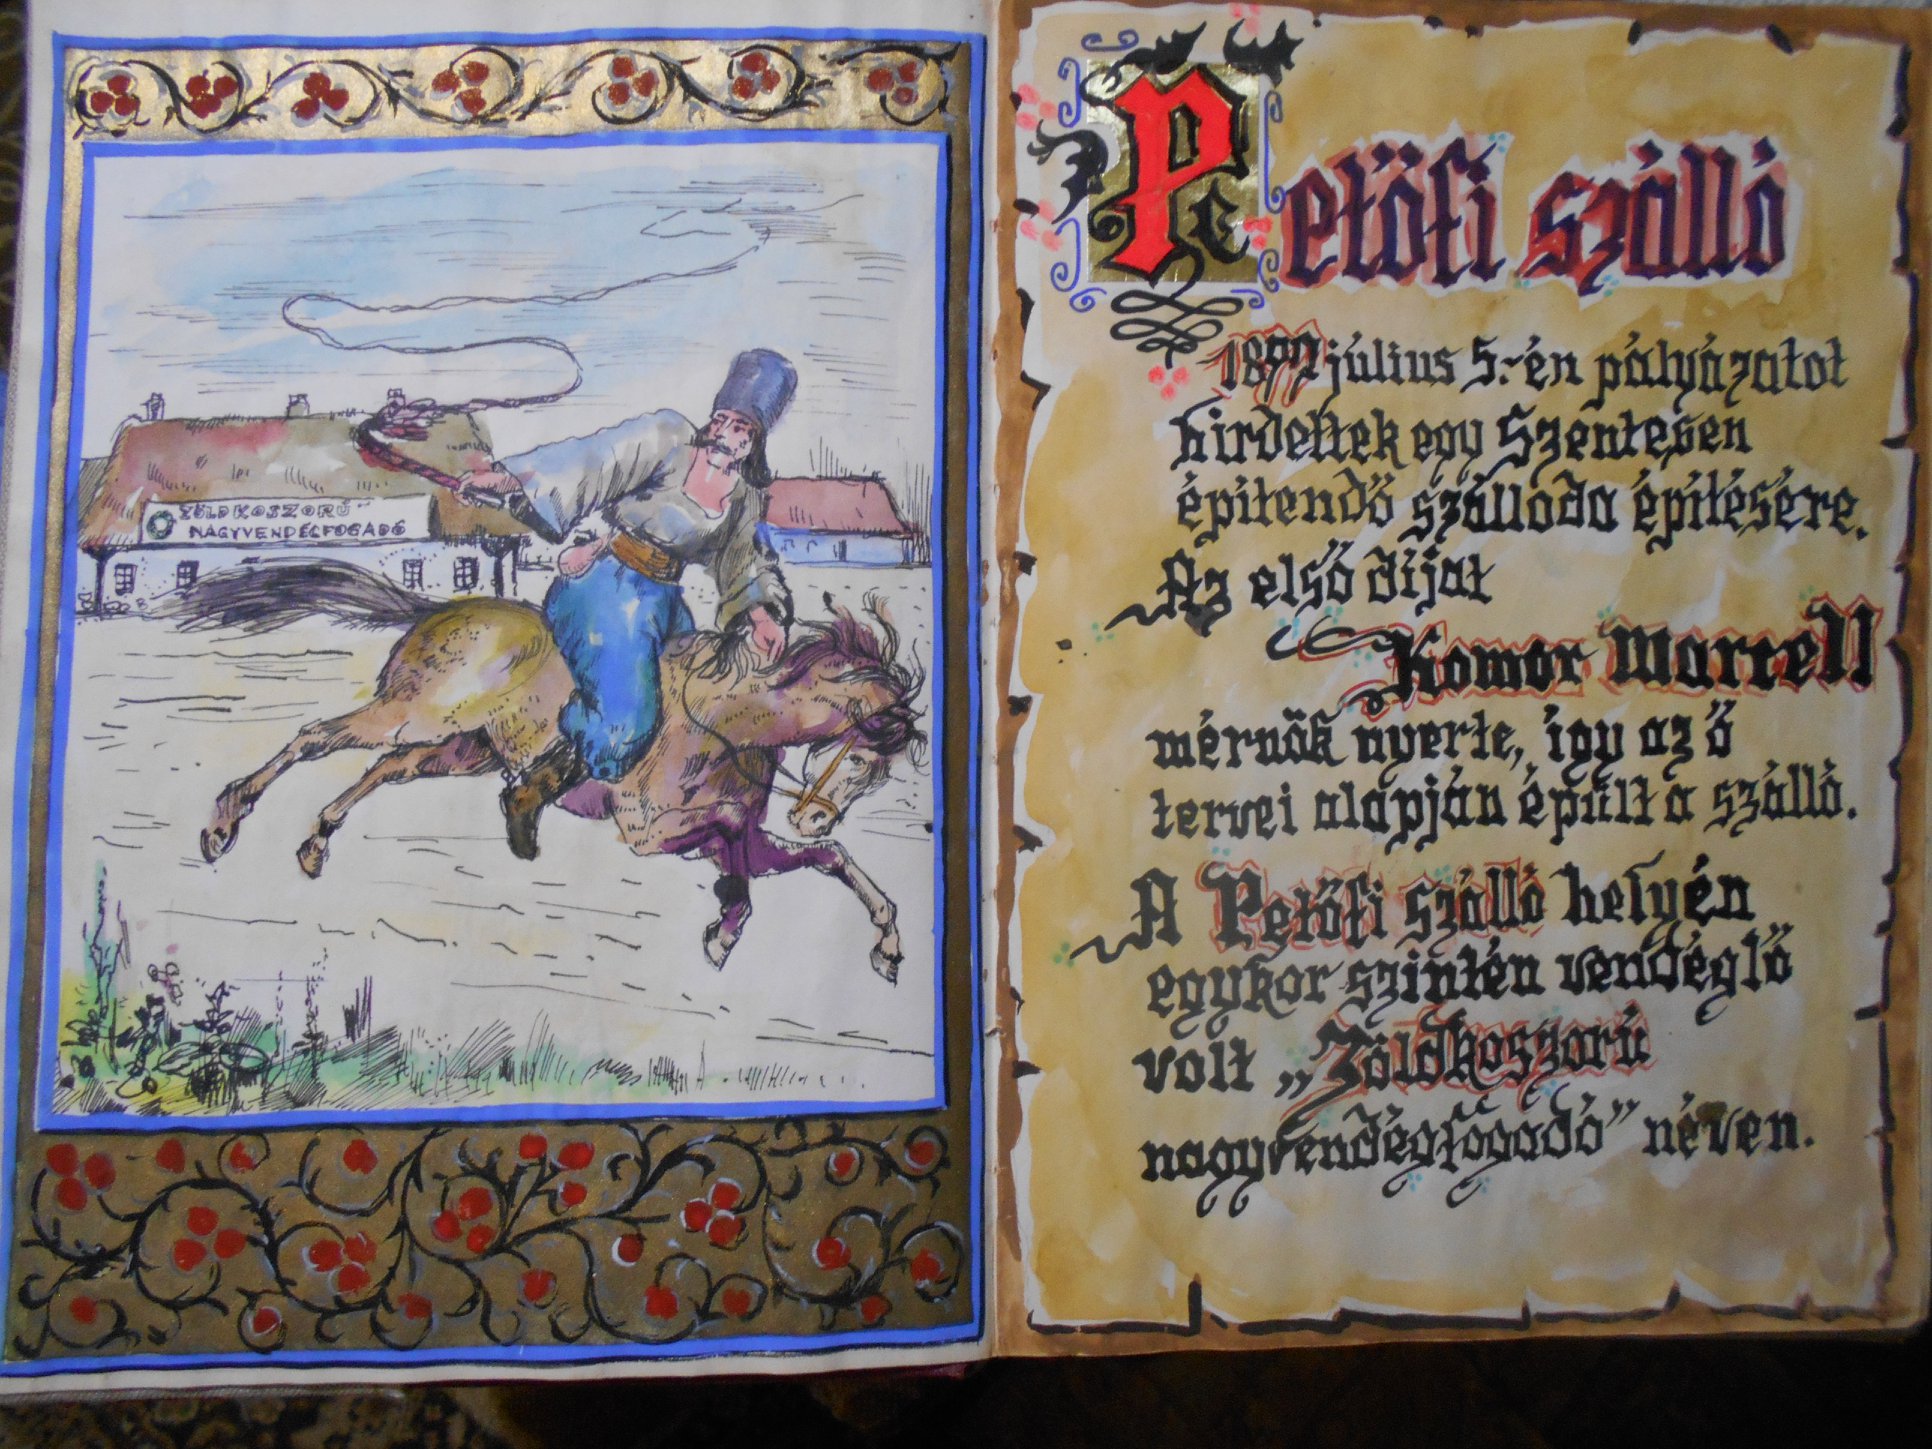 ZÖLDKOSZORÚ
NAGYVENDÉGFOGADÓ
Petőfi szálló
július 5.-én pályázatot
hirdettek egy Szentesen
építendő szálloda építésére.
Az első díjat
Komor Marcell
mérnök nyerte, így az ő
tervei alapján épült a szálló.
A Petőfi szálló helyén
egykor szintén vendéglő
volt „Zöldkoszorú
nagyvendégfogadó” néven.